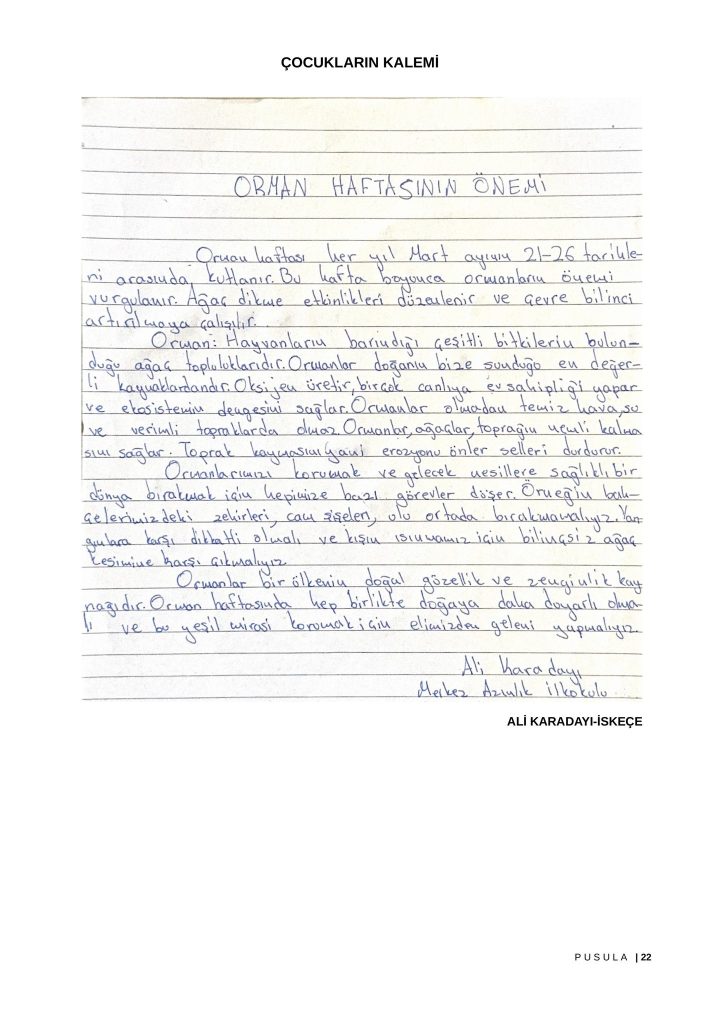 ÇOCUKLARIN KALEMİ
ORMAN HAFTASININ ÖNEMİ
Orman haftası her yıl Mart ayının 21-26 tarihle-
ri arasında kutlanır. Bu hafta boyunca ormanların önemi
vurgulanır. Ağaç dikme etkinlikleri düzenlenir ve çevre bilinci
artırılmaya çalışılır.
Orman: Hayvanların barındığı çeşitli bitkilerin bulun-
duğu ağaç topluluklarıdır. Ormanlar doğanın bize sunduğu en değer-
li kaynaklardandır. Oksijen üretir, birçok canlıya ev sahipliği yapar
ve ekosistemin dengesini sağlar. Ormanlar olmadan temiz hava, su
ve verimli topraklarda olmaz. Ormanlar, ağaçlar, toprağın nemli kalma
sını sağlar. Toprak kaymasını yani erozyonu önler selleri durdurur.
Ormanlarımızı korumak ve gelecek nesillere sağlıklı bir
dünya bırakmak için hepimize bazı görevler düşer. Örneğin bah-
çelerimizdeki zehirleri, cam şişeleri, ulu ortada bırakmamalıyız. Yan
gınlara karşı dikkatli olmalı ve kışın ısınmamız için bilinçsiz ağaç
kesimine karşı çıkmalıyız
Ormanlar bir ülkenin doğal gözellik ve zenginlik kay
nağıdır. Orman haftasında hep birlikte doğaya daha duyarlı olma
lı ve bu yeşil mirası korumak için elimizden geleni yapmalıyız.
Ali Karadayı
Merkez Azınlık İlkokulu
ALİ KARADAYI-İSKEÇE
PUSULA | 22